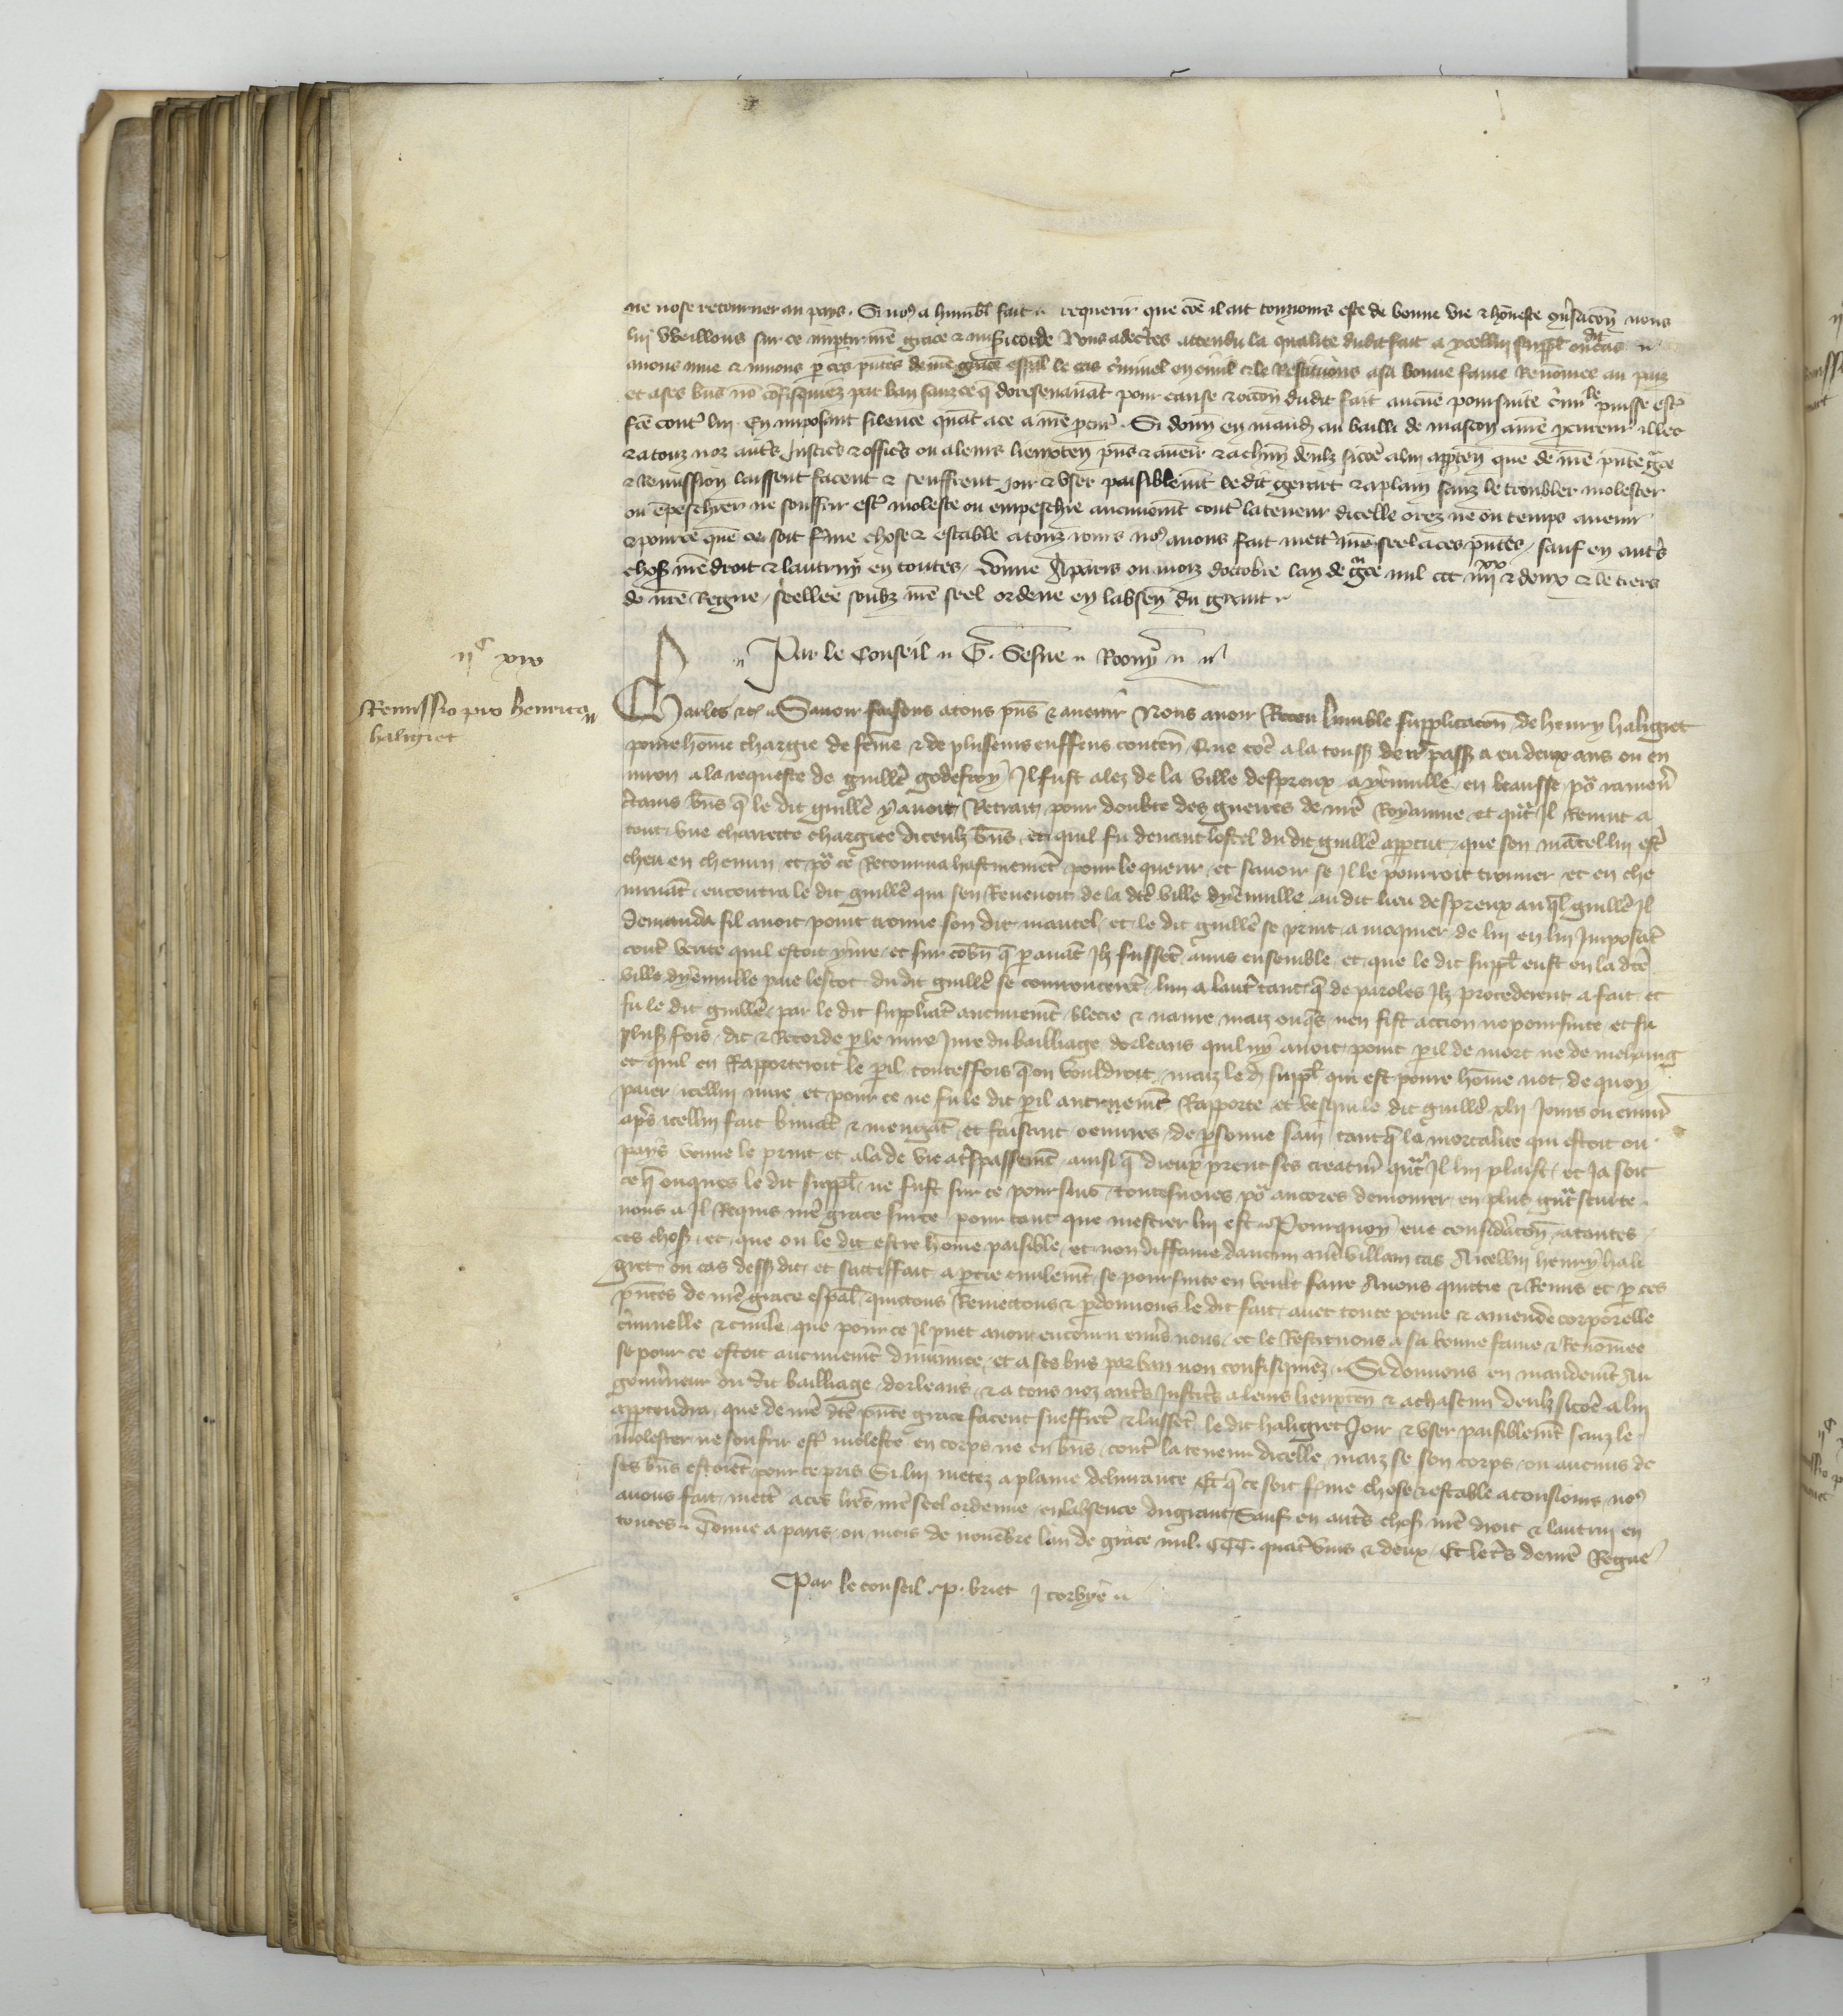 ne nose retourner au pays. Si no9 a humbl fait requerir que coe il ait touzjours este de bonne vie & honneste cōversacōn nous
lui vueillons sur ce impartir nre grace & misericorde Nous adecertes attendu la qualite dudit fait a ycellui suppl ou dit cas
avons mue & muons p ces pntes de nre grace espal le cas criminel en civil & le Restituons a sa bonne fame Renommee au païs
et a ses biens nō cōfisquiez par ban sanz ce q doresenavāt pour cause & occōn dudit fait aucune poursuite crimle puisse estr
fce contr lui En imposant silence quāt a ce a nre pcur. Si donn en mand au bailli de mascon a nre procureur illec
& a touz noz autrs Justicrs & officrs ou a leurs lieuxten pns & avenir & a chūn deulz sicōe a lui apprten que de nre pnte grace
& Remission laissent facent & seuffrent joir & user paisiblemt le dit gerart & a plain sanz le troubler molester
ou empeschier ne souffrir estr moleste ou empeschie aucunemt contr la teneur dicelle orez ne ou temps avenir
& pource que ce soit ferme chose & estable a touz jours no9 avons fait mettr nre seel a ces pntes, sauf en autrs
chos nre droit & lautruy en toutes, Donne A paris ou mois doctobre lan de grace mil ccc iiii xx & deux & le tiers
de nre Regne, seellee soubz nre seel ordene en labsen du grant
Par le Conseil G. Sesne
ii c xiv
Remissio pro henrico
haligret
Charles &c Savoir faisons a tous pns & avenir Nous avoir Receu lumble supplicacōn de henry haligret
povre hōme chargie de fēme & de plusieurs enffens conten, Que cōe a la touss derr pass a eu deux ans ou en
viron a la requeste de guillē godefroy Il fust alez de la ville despreux a yenville en beausse por ramenr
crtains biens q le dit guillē y avoit Retraiz pour doubte des guerres de nre Royaume, et qnt Il Revint a
tout une charrette chargiee diceulz biens, et quil fu devant lostel du dit guillē apprcut que son mātel lui estr
cheu en chemin, et por ce Retourna hastivement pour le querir, et savoir se Il le pourroit trouver, et en che
minant encontra le dit guillē qui sen Revenoit de la dce ville dyenville au dit lieu despreux auql guillē Il
demanda sil avoit point trouve son dit mantel, et le dit guillē se print a moquier de lui en lui Imposāt
contr verite quil estoit yvre, et sur cōbn q paravāt Ilz fussēt amis ensemble, et que le dit suppl eust en la dce
ville dyenville paie lescot du dit guillē se courroucerēt lun a lautr tant q de paroles Ilz procederent a fait et
fu le dit guillē par le dit suppliāt aucunemt blecie & navre maiz onqs nen fist accion ne poursuite, et fu
plus fois dit & Recorde p le mire Jure du bailliage dorleans quil ny avoit point pil de mort ne de mehaing
et quil en Rapporteroit le pil toutesfois q on vouldroit, maiz le d suppl qui est povre hōme not de quoy
paier icellui mire, et pour ce ne fu le dit pil autrement Rapporte et vesqui le dit guillē xlii Jours ou envirō
aprs icellui fait buvāt & mengāt et faisant oeuvres de psonne sain, tant q la mortalite qui estoit ou
pays venue le print et ala de vie a trspassemt, ainsi q dieux prent ses creaturs qnt Il lui plaist, et Ja soit
ce q onques le dit suppl ne fust sur ce poursuivi, toutesvoies por ancores demourer en plus grāt seurte
nous a Il Requis nre grace sur ce pour tant que mestier lui est. Pourquoy eue considracōn a toutes
ces chos, et que on le dit estre hōme paisible, et non diffame daucun autr villain cas Aicellui henry hali
gret ou cas dess dit, et satisffait a partie civilemt se poursuite en veult faire Avons quittie & Remis et p ces
pntes de nre grace espal quictons Remettons & pardonnons le dit fait, avec toute peine & amende corporelle
criminelle & civile, que pour ce Il puet avoir encouru envrs nous, et le Restituons a sa bonne fame & Renōmee
se pour ce estoit aucunemt diminuee, et a ses bns par ban non confisquiez. Si donnons en mandemt Au
gouvrneur du dit bailliage dorleans, & a tous noz autrs Justicrs a leurs lieuxten & a chascun deulz sicōe a lui
apprtendra, que de nre dce pnte grace facent sueffrēt & lassēt le dit haligret Joir & user paisiblemt sanz le
molester ne souffrir estr moleste en corps ne en bns contr la teneur dicelle, maiz se son corps ou aucuns de
ses bns estoiēt pour ce pris Si lui metez a plaine delivrance Et q ce soit ferme chose & estable a tousiours, no9
avons fait mettr a ces lres nre seel ordenne en labsence du grant Sauf en autrs chos nre droit & lautrui en
toutes. Donne a paris, ou mois de novēbre lan de grace mil CCC quatrvins & deux, Et le trs de nre Regne
Par le conseil. P. briet J corbye